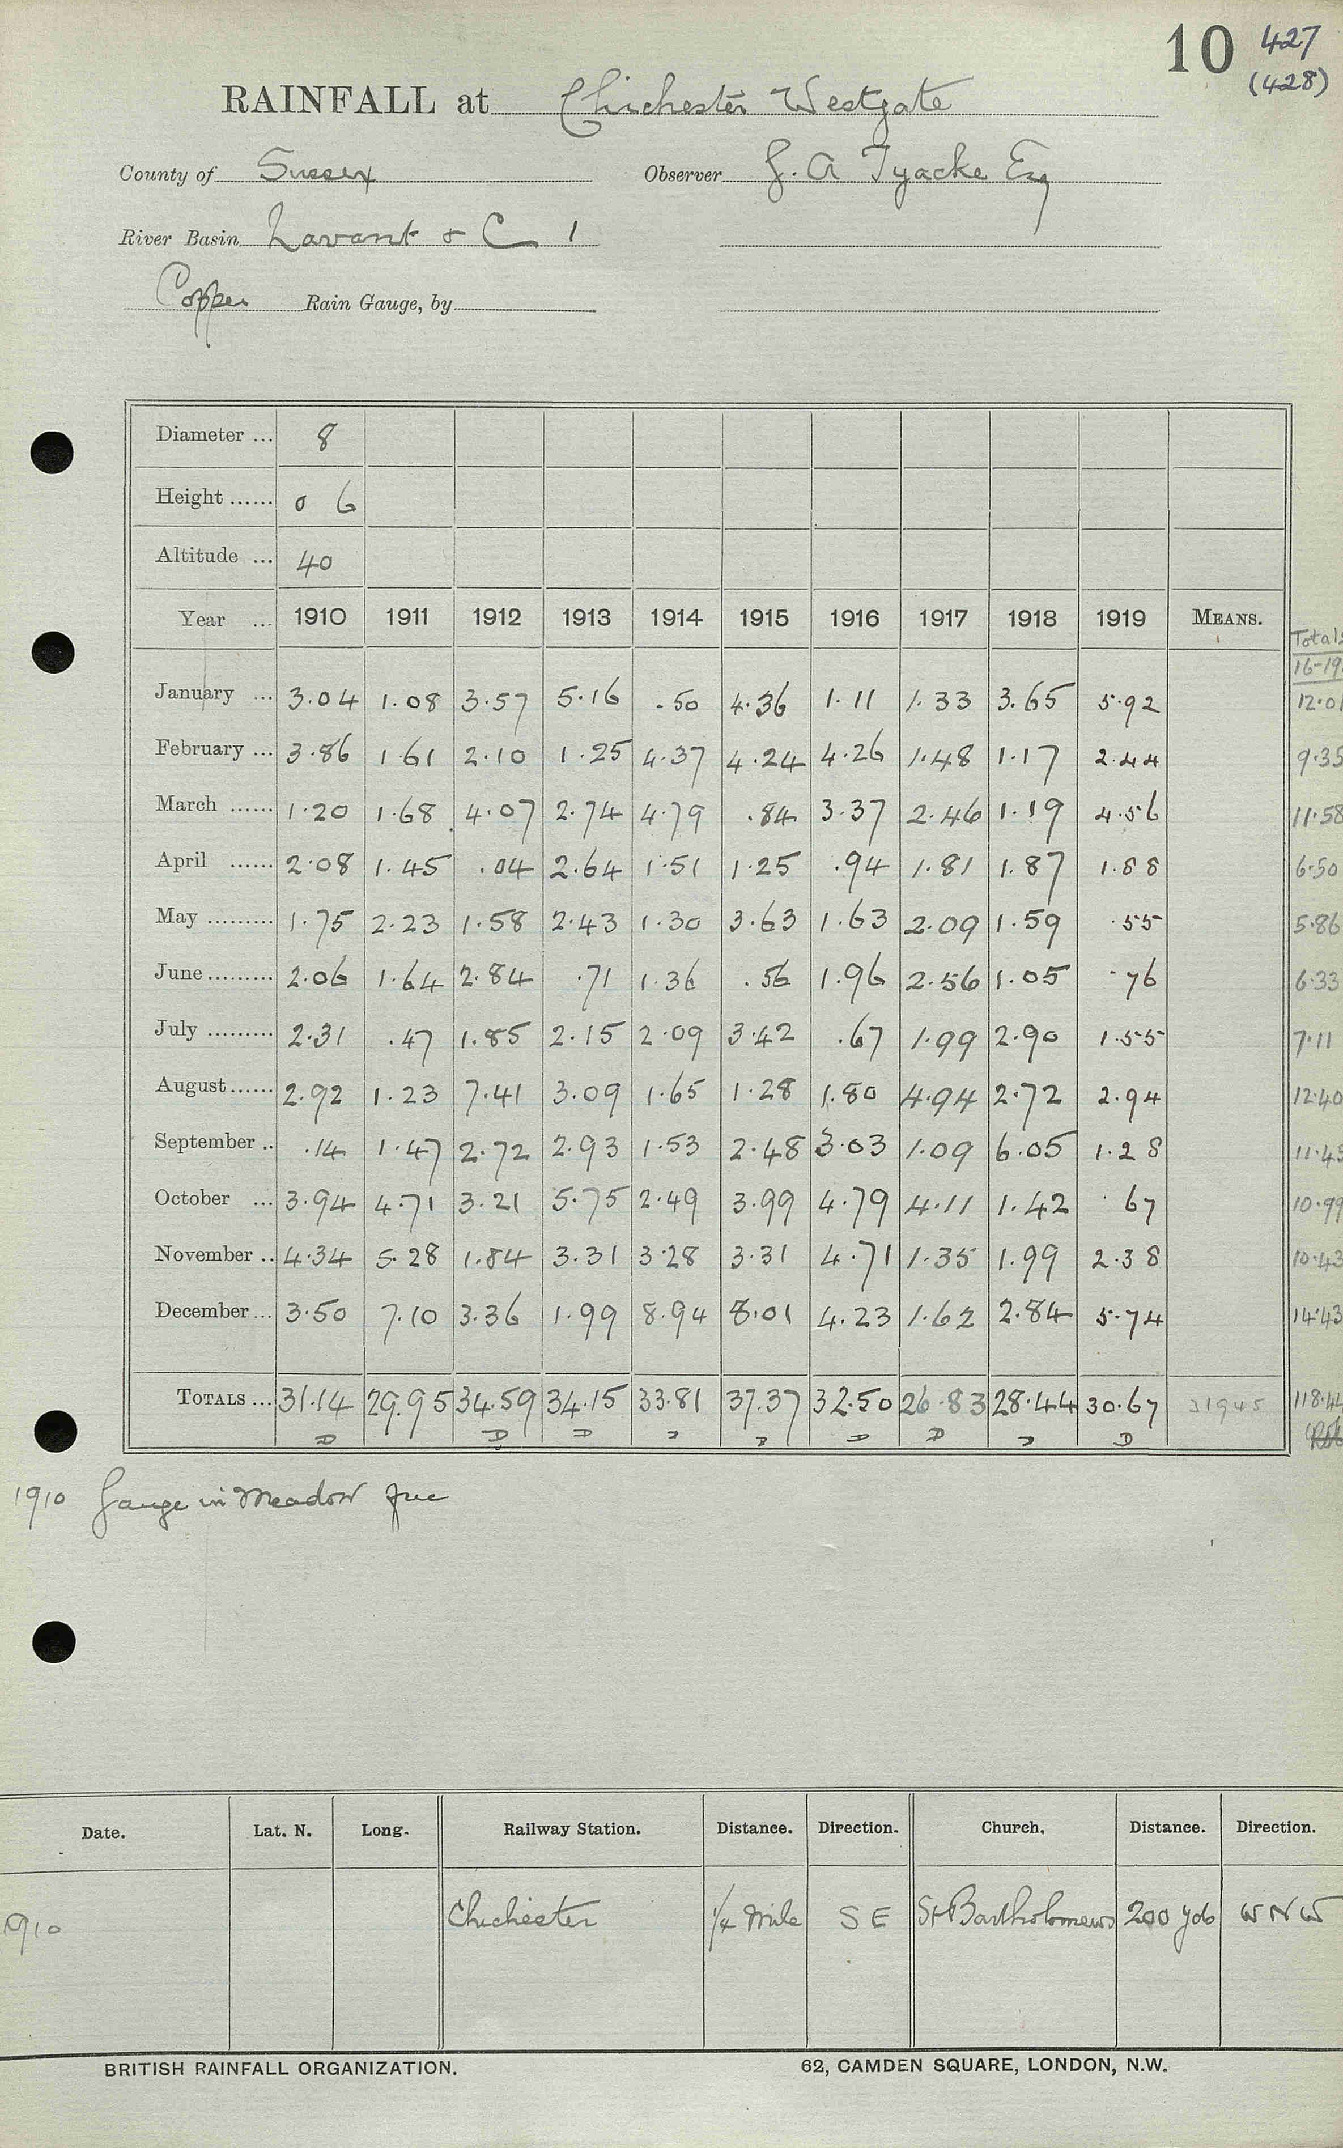 10 427
(428)
RAINFALL at Chichester Westgate
County of Sussex Observer G. A Tyacke Esq
River Basin Lavant & C 1
Copper Rain Gauge, by
Diameter ... 8
Height ...... 0 6
Altitude ... 40
Year ... 1910 1911 1912 1913 1914 1915 1916 1917 1918 1919 MEANS. Totals
16-19
January ... 3.04 1.08 3.57 5.16 .50 4.36 1.11 1.33 3.65 5.92 12.01
February ... 3.86 1.61 2.10 1.25 4.37 4.24 4.26 1.48 1.17 2.44 9.35
March ...... 1.20 1.68 4.07 2.74 4.79 .84 3.37 2.46 1.19 4.56 11.58
April ...... 2.08 1.45 .04 2.64 1.51 1.25 .94 1.81 1.87 1.88 6.50
May ......... 1.75 2.23 1.58 2.43 1.30 3.63 1.63 2.09 1.59 .55 5.86
June ......... 2.06 1.64 2.84 .71 1.36 .56 1.96 2.56 1.05 .76 6.33
July ......... 2.31 .47 1.85 2.15 2.09 3.42 .67 1.99 2.90 1.55 7.11
August ...... 2.92 1.23 7.41 3.09 1.65 1.28 1.80 4.94 2.72 2.94 12.40
September .. .14 1.47 2.72 2.93 1.53 2.48 3.03 1.09 6.05 1.28 11.45
October ... 3.94 4.71 3.21 5.75 2.49 3.99 4.79 4.11 1.42 .67 10.99
November .. 4.34 5.28 1.84 3.31 3.28 3.31 4.71 1.35 1.99 2.38 10.43
December ... 3.50 7.10 3.36 1.99 8.94 8.01 4.23 1.62 2.84 5.74 14.43
TOTALS ... 31.14 29.95 34.59 34.15 33.81 37.37 32.50 26.83 28.44 30.67 31945 118.44
1910 Gauge in Meadow
Date. Lat. N. Long. Railway Station. Distance. Direction. Church. Distance. Direction.
1910 Chichester 1/4 Mile S E St Bartholomews 200 yds W N W
BRITISH RAINFALL ORGANIZATION. 62, CAMDEN SQUARE, LONDON, N.W.